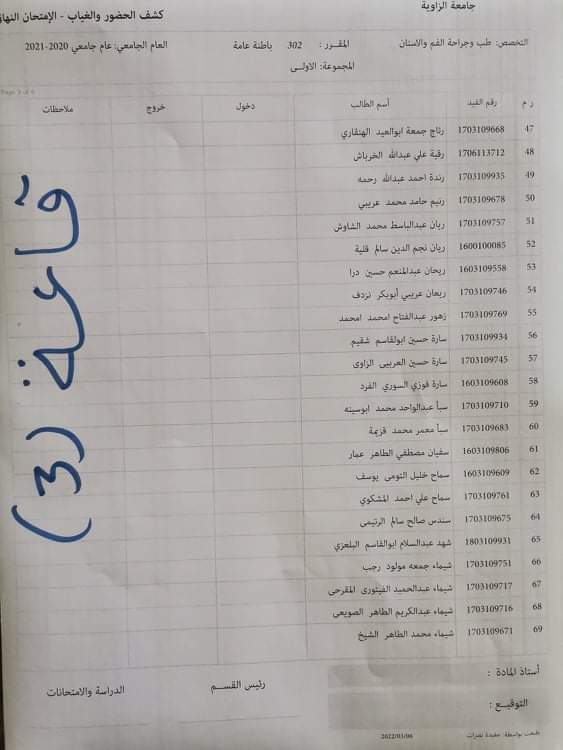 جامعة الزاوية
كشف الحضور والغياب - الإمتحان النها
التخصص: طب وجراحة الفم والاسنان المقـرر : 302 باطنة عامة العام الجامعي: عام جامعي 2020-2021
المجموعة: الاولـى
ر م رقم القيد أسم الطالب دخول خروج ملاحظات
47 1703109668 رتاج جمعة ابوالعيد الهنقاري
48 1706113712 رقية علي عبدالله الخرباش
49 1703109935 رندة احمد عبدالله رحمه
50 1703109678 رنيم حامد محمد عريبي
51 1703109757 ريان عبدالباسط محمد الشاوش
52 1600100085 ريان نجم الدين سالم قلية
53 1603109558 ريحان عبدالمنعم حسين درا
54 1703109746 ريعان عريبي أبوبكر نزدف
55 1703109769 زهور عبدالفتاح امحمد امحمد
56 1703109934 سارة حسين ابولقاسم شقيم
57 1703109745 سارة حسين العريبى الزاوى
58 1603109608 سارة فوزي السوري الفرد
59 1703109710 سبأ عبدالواحد محمد ابوسينه
60 1703109683 سبأ معمر محمد قزيمة
61 1603109806 سفيان مصطفي الطاهر عمار
62 1603109609 سماح خليل التومى يوسف
63 1703109761 سماح علي احمد المشكوي
64 1703109675 سندس صالح سالم الرتيمى
65 1803109931 شهد عبدالسلام ابوالقاسم البلعزي
66 1703109751 شيماء جمعه مولود رجب
67 1703109717 شيماء عبدالحميد الفيتورى المقرحى
68 1703109716 شيماء عبدالكريم الطاهر الصويعى
69 1703109671 شيماء محمد الطاهر الشيخ
قاعة (3)
أستاذ المادة : رئيس القســم الدراسة والامتحانات
التوقيــع :
طبعت بواسطة: مفيدة نصرات 2022/03/06